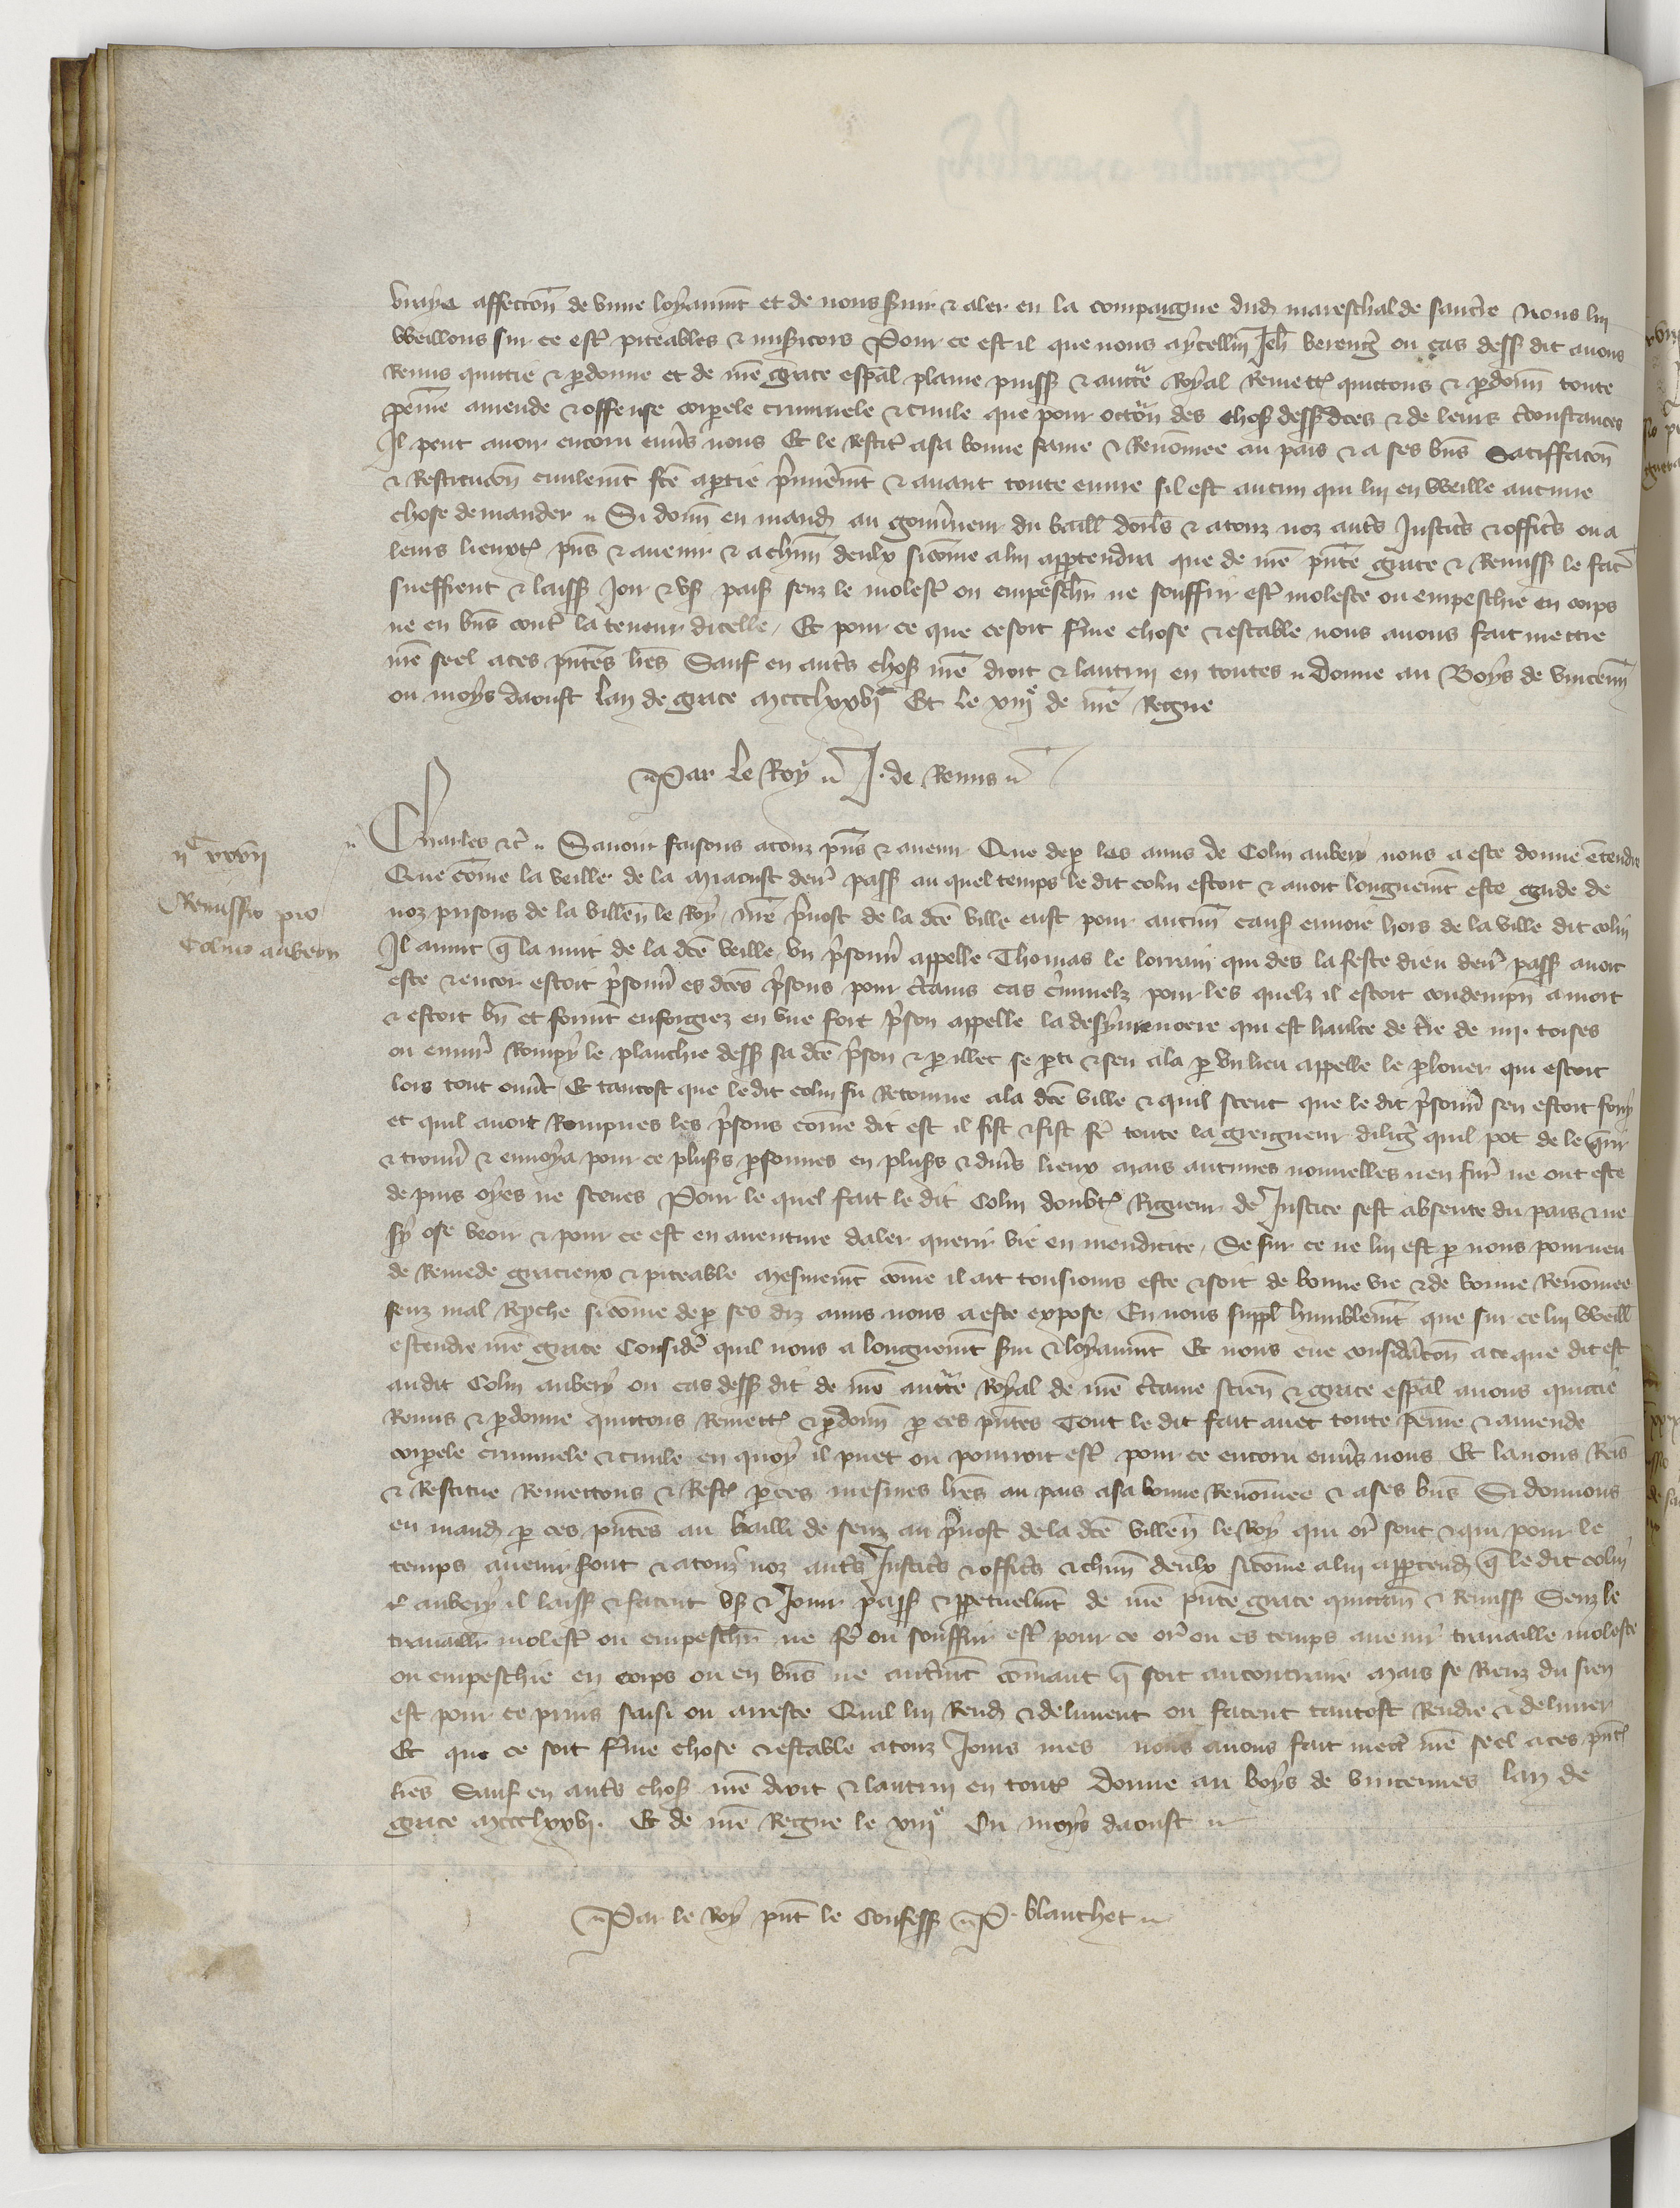 vraye affection de vivre loyaument et de nous servir & aler en la compaignie dud mareschal de sancerre Nous lui
Weillons sur ce estre piteables & misericors Pour ce est il que nous aycellui Jeh berengier ou cas dessus dit avons
Remis quittie & pardonne et de nre grace espal plaine puissance & auctorite Royal Remettons quittons & pardonnons toute
peine amende & offense corporele criminele & civile que pour occasion des choses dessus dites & de leurs circonstances
Il peut avoir encoru envers nous Et le restituons a sa bonne fame & Renommee au pais & a ses biens Satiffacion
& Restitucion civilement fte a partie premierement & avant toute euvre sil est aucun qui lui en Weille aucune
chose demander Si donnons en mandement au gouverneur du baill dorls & a touz noz autres Justiciers & officiers ou a
leurs lieuxtenans presens & avenir & a chascun deulx sicomme a lui appartendra que de nre pnte grace & Remission le facent
sueffrent & laissent Joir & user paisiblement senz le molester ou empeschier ne souffrir estre moleste ou empeschie en corps
ne en biens contre la teneur dicelle Et pour ce que ce soit ferme chose & estable nous avons fait mettre
nre seel a ces pntes lres Sauf en autres choses nre droit & lautrui en toutes Donne au Boys de vincennes
ou moys daoust lan de grace mccclxxvi Et le xiiie de nre Regne
Par le Roy J. de Remis
iic xxxvii
Charles &c Savoir faisons a touz pns & avenir Que de par les amis de Colin aubery nous a este donne entendre
Remissio pro
Colino aubery
Que comme la veille de la miaoust dernierement passee au quel temps le dit colin estoit & avoit longuement este garde de
noz prisons de la villeneuve le Roy nre prevost de la dte ville eust pour aucunes causes envoie hors de la ville dit colin
Il avint que la nuit de la dte veille un prisonnier appelle Thomas le lorrain qui des la feste dieu dernierement passee avoit
este & encor estoit prisonnier es dtes prisons pour certains cas criminelz pour les quelz il estoit condempne a mort
& estoit bien et forment enforgiez en une fort prison appelle la des qui est haulte de terre de iiii toises
ou environ Rompy le planchie dessus sa dte prison & par illec se parti & sen ala par un lieu appelle le parlouer qui estoit
lors tout ouvert Et tantost que le dit colin fu Retourne a la dte ville & quil sceut que le dit prisonnier sen estoit fouy
et quil avoit Rompues les prisons comme dit est il fist & fist fere toute la greigneur diligence quil pot de le querir
& trouver & envoya pour ce plusieurs personnes en plusieurs & divers lieux mais aucunes nouvelles nen furent ne ont este
de puis oyes ne sceues Pour le quel fait le dit Colin doubtant Rigueur de Justice sest absente du pais & ne
sy ose veoir & pour ce est en aventure daler querir vie en mendicite Se sur ce ne lui est par nous pourveu
de Remede gracieux & piteable mesmement comme il ait tousjours este & soit de bonne vie & de bonne Renommee
senz mal Reproche sicomme de par ses diz amis nous a este expose En nous suppliant humblement que sur ce lui Weillons
estendre nre grace Considere quil nous a longuement servi & loyaument Et nous eue consideracion a ce que dit est
au dit Colin aubery ou cas dessus dit de nre auctorite Royal de nre certaine science & grace espal avons quittie
Remis & pardonne quittons Remettons & pardonnons par ces pntes Tout le dit fait avec toute peine & amende
corporele criminele & civile en quoy il puet ou pourroit estre pour ce encoru envers nous Et lavons Remis
& Restitue Remettons & Restituons par ces mesmes lres au pais a sa bonne Renommee & a ses biens Si donnons
en mandement par ces pntes au bailli de senz au prevost de la dte villeneuve le Roy qui ores sont & qui pour le
temps avenir seront & a touz noz autres Justiciers & officiers & chascun deulx sicomme a lui appartendra que le dit colin
aubery il laissent & facent user & Jouir paisiblement & perpetuelment de nre pnte grace quittance & Remission Senz le
travaillier molester ou empeschier ne fere ou souffrir estre pour ce ores ou es temps avenir travaille moleste
ou empeschie en corps ou en biens ne autrement comment que soit au contraire mais se Riens du sien
est pour ce prins saisi ou arreste Quil lui Rendent & delivrent ou facent tantost Rendre & delivrer
Et que ce soit ferme chose & estable a touz Jours mes nous avons fait mettre nre seel a ces pntes
lres Sauf en autres choses nre droit & lautrui en toutes Donne au boys de vincennes lan de
grace mccclxxvi. Et de nre Regne le xiiie Ou moys daoust
Par le Roy pnt le Confesseur P. blanchet